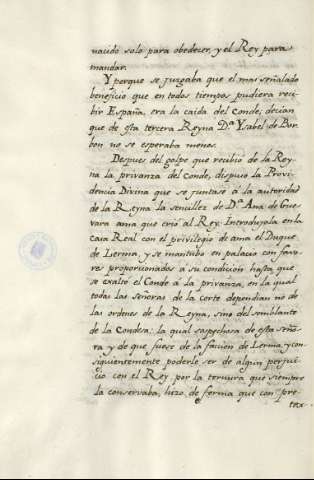 nacido solo para obedecer, y el Rey para
mandar.
Y porque se juzgaba que el mas señalado
beneficio que en todos tiempos pudiera reci-
bir España, era la caida del Conde, decian
que de esta tercera Reyna Dª Ysabel de Bor-
bon no se esperaba menos.
Despues del golpe que recibio de la Rey-
na la privanza del Conde, dispuso la Provi-
dencia Divina que se juntase á la autoridad
de la Reyna la sencillez de Dª Ana de Gue-
vara ama que crió al Rey. Introdujola en la
casa Real con el privilegio de ama el Duque
de Lerma, y se mantubo en palacio con favo-
res proporcionados a su condicion hasta que
se exaltó el Conde á la privanza, en la qual
todas las señoras de la corte dependian no de
las ordenes de la Reyna, sino del semblante
de la Condesa: la qual sospechosa de esta seño-
ra y de que fuese de la facion de Lerma, y con-
siguientemente poderle ser de algun perjui-
cio con el Rey por la ternura que siempre
la conservaba, hizo de forma que con pre-
tex-